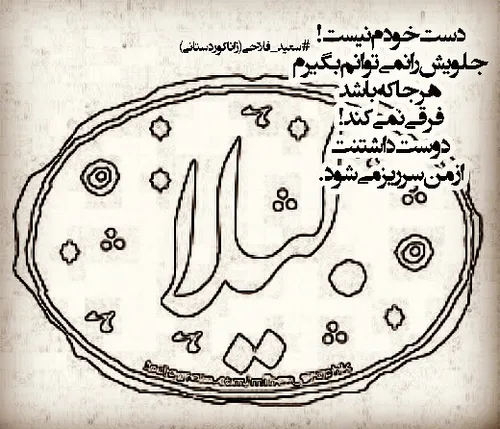 دست خودم نیست!
#سعید_فلاحی(زاناکوردستانی)
جلویش را نمی توانم بگیرم
هر جا که باشد
فرقی نمی کند!
دوست داشتنت
از من سرریز می شود.
لیلا